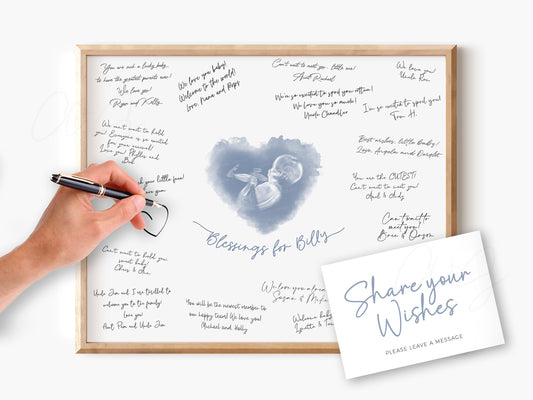 You are such a lucky baby,
to have the greatest parents ever!
We love you!
Ryan and Kelly
We love you baby!
Welcome to the world!
Love, Nana and Pops
Can't wait to meet you, little one!
Aunt Rachael
We love you!
Uncle Ron
We're so excited to spoil you rotten!
We love you so much!
Uncle Chandler
I'm so excited to spoil you!
Tom H.
We can't wait to hold
you! Everyone is so excited
for your arrival!
Love you! Phyllis and
Bob
Best wishes, little baby!
Love, Angela and Dwight
your little face!
You are the CUTEST!
Can't wait to meet you!
Andy
Can't wait to
meet you!
Blessings for Billy
Can't wait to hold you,
sweet baby!
Chris &
We love you
Susan &
Uncle Jim and I are thrilled to
welcome you to the family!
Love you!
Aunt Pam and Uncle Jim
You will be the newest member to
our happy tears! We love you!
Michael and Holly
Welcome
Share your
Wishes
PLEASE LEAVE A MESSAGE